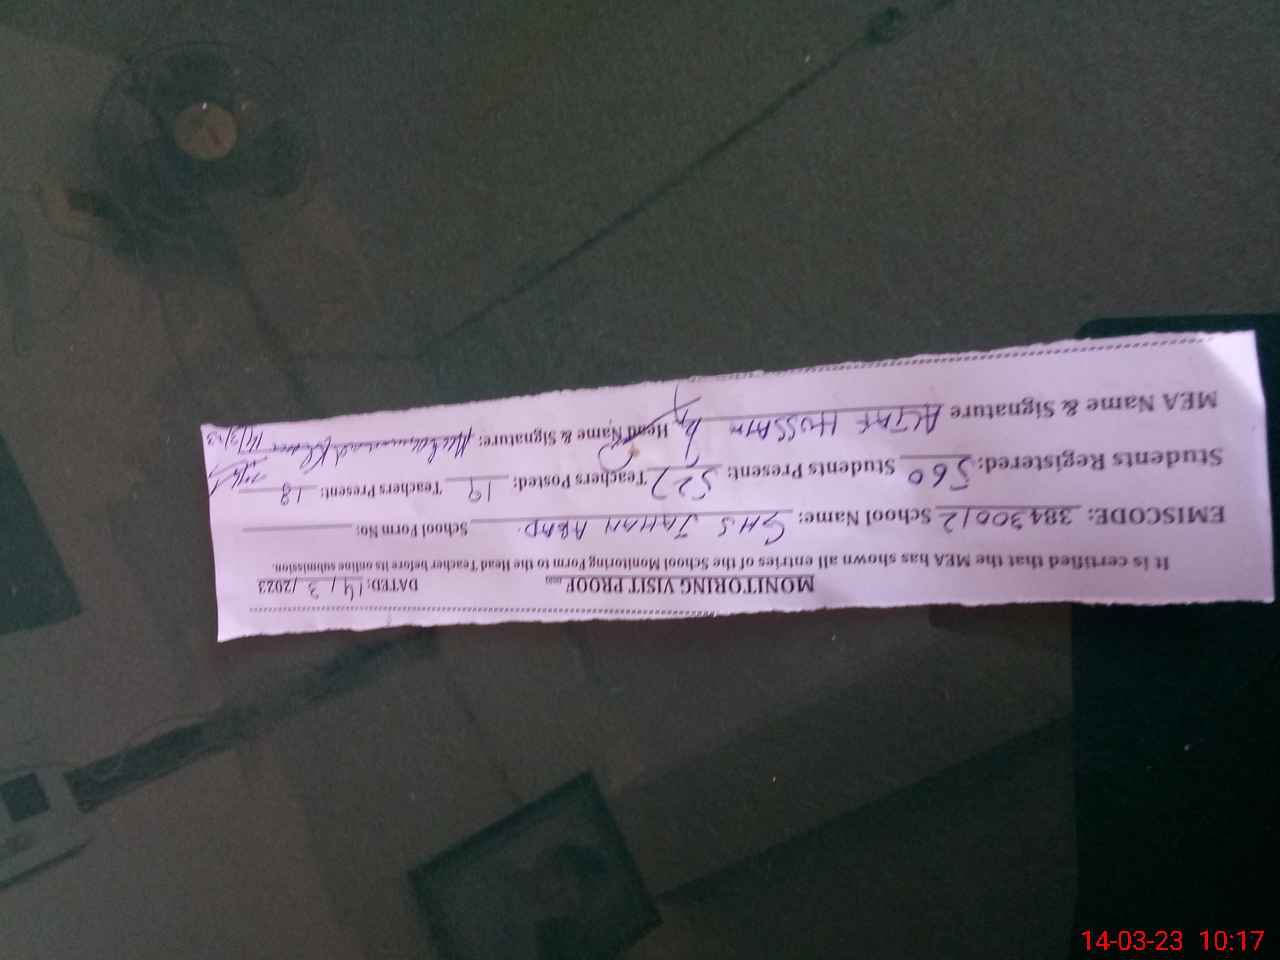 MONITORING VISIT PROOF DATED: 14 / 3 /2023
It is certified that the MEA has shown all entries of the School Monitoring Form to the Head Teacher before its online submission.
EMISCODE: 38430012 School Name: GHS JAHAN ABAD. School Form No:
Students Registered: 560 Students Present: 522 Teachers Posted: 19 Teachers Present: 18
MEA Name & Signature ALTAF HUSSAIN Head Name & Signature: Muhammad 14/3/23
14-03-23 10:17